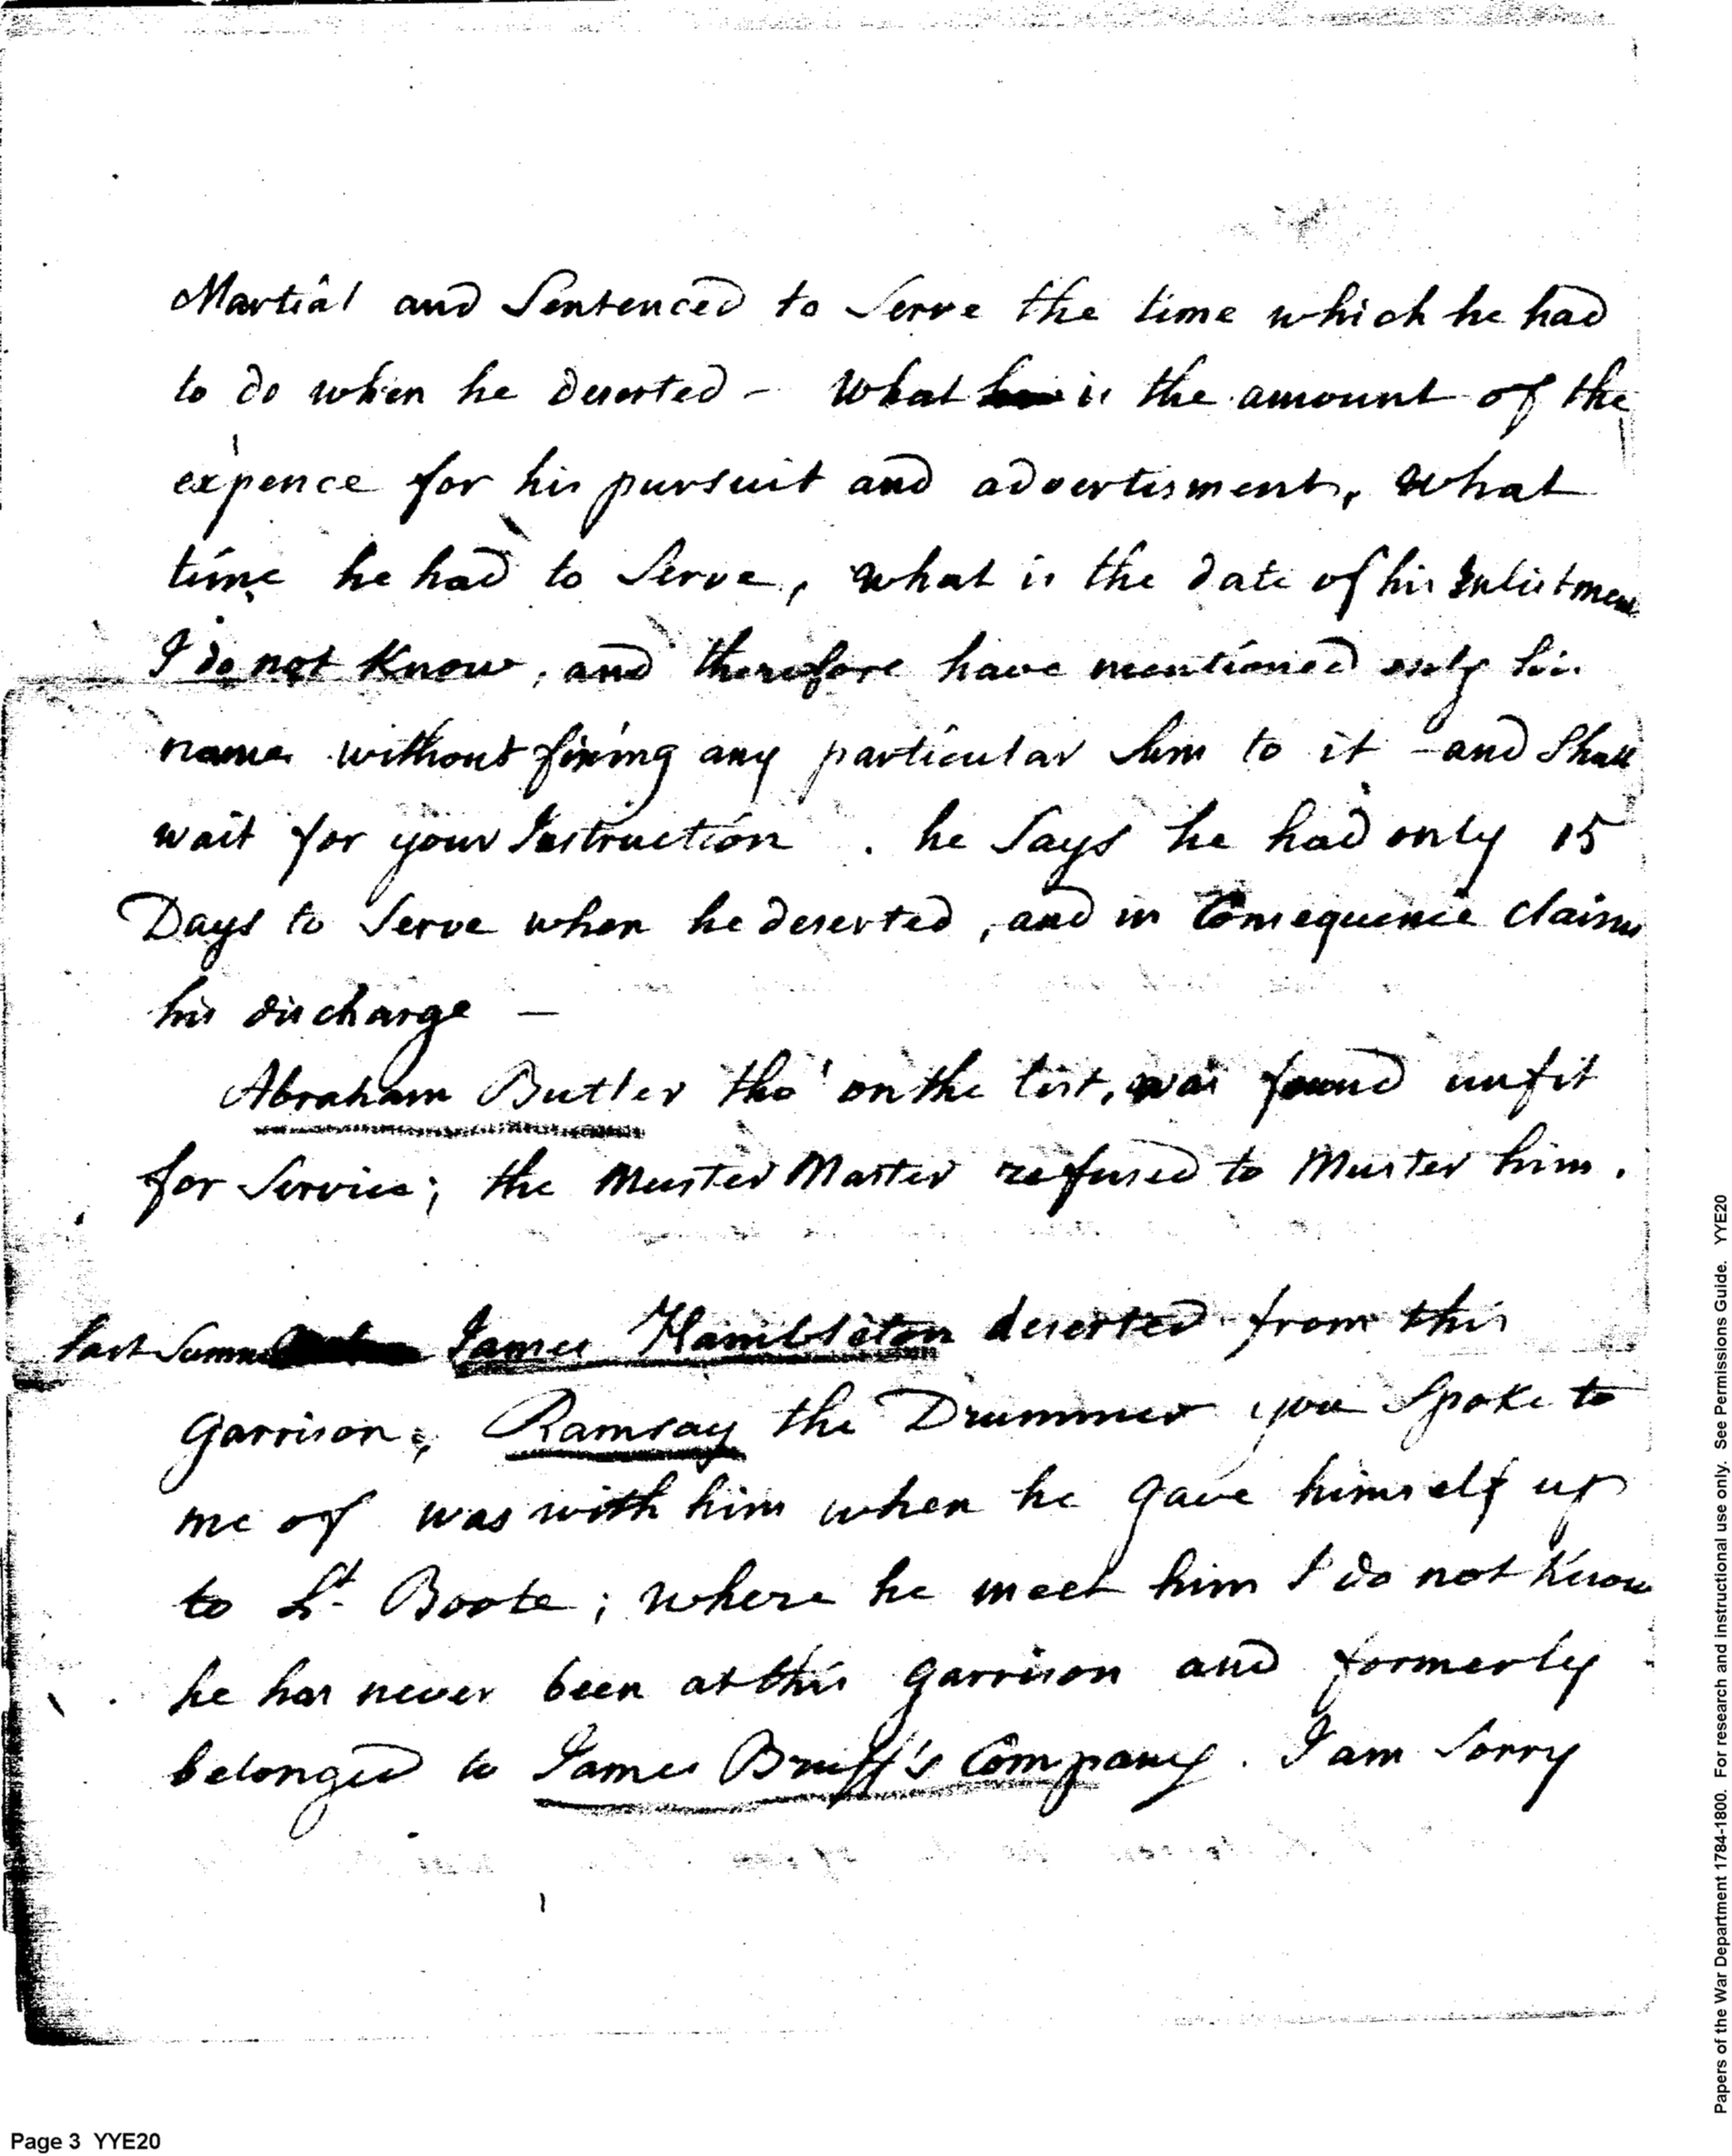 Martial and Sentenced to Serve the time which he had
to do when he deserted - What is the amount of the
expence for his pursuit and advertisment, What
time he had to Serve, what is the date of his Inlistmen
I do not Know, and therefore have mentioned only his
name without fixing any particular Sum to it - and Shall
wait for your Instruction . he Says he had only 15
Days to Serve when he deserted, and in Consequence claims
his discharge —
Abraham Butler tho' on the list, was found unfit
for Service; the Muster Master refused to Muster him.
last Summer James Hambleton deserted from this
garrison, Ramsay the Drummer you Spoke to
me of was with him when he gave himself up
to Lt. Boote; where he meet him I do not Know
he has never been at this garrison and formerly
belonged to James Bruff's Company. I am Sorry
Page 3 YYE20
Papers of the War Department 1784-1800. For research and instructional use only. See Permissions Guide. YYE20